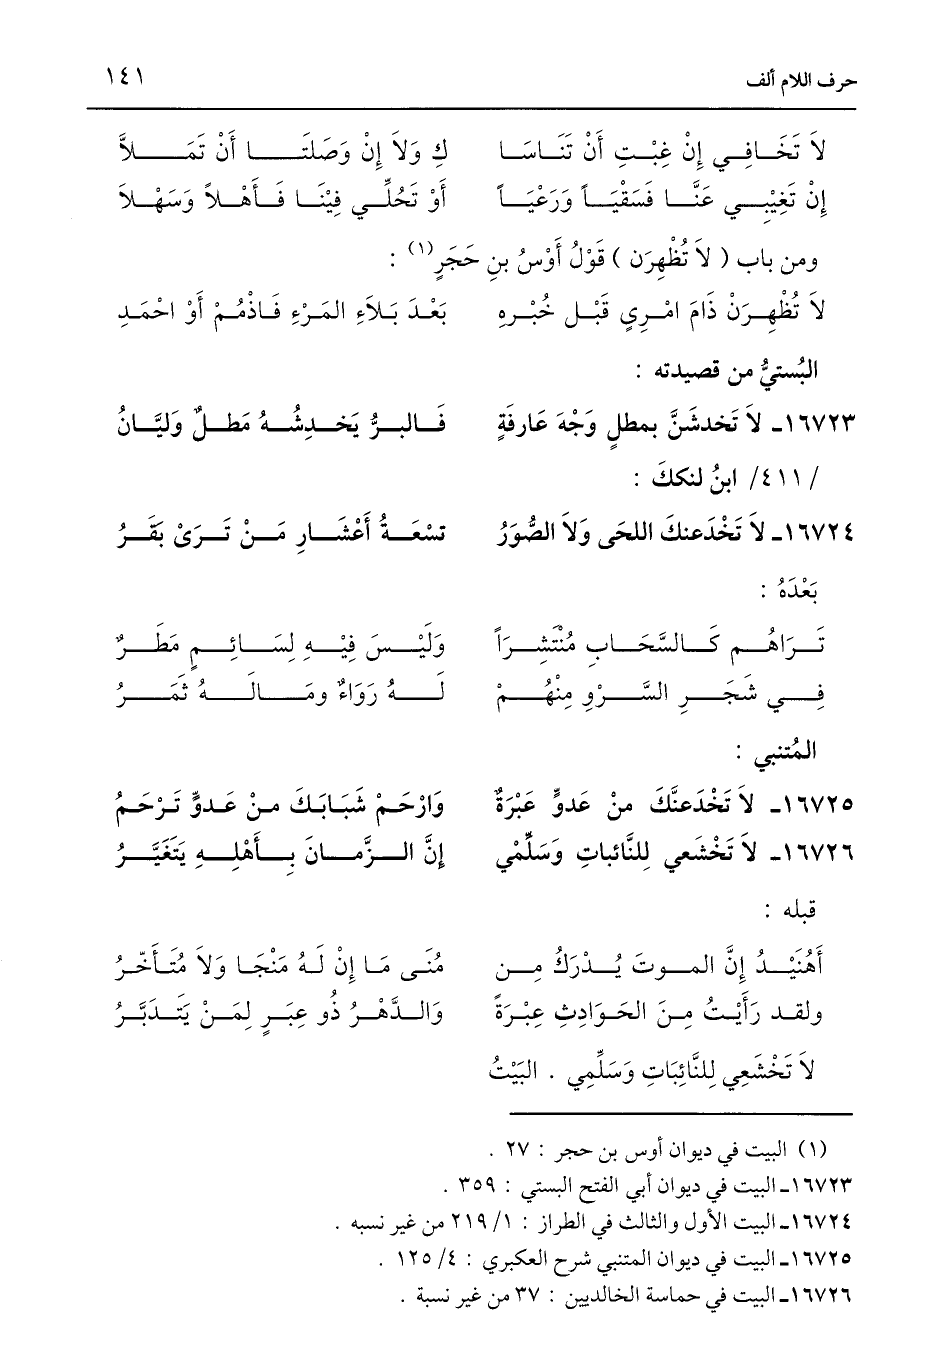 حرف اللام ألف ١٤١
لاَ تَخَافِي إِنْ غِبْتِ أَن تَنَاسَا كِ وَلاَ إِنْ وَصَلَتَا أَنْ تَمَلاَّ
إِنْ تَغِيْبِي عَنَّا فَسَقْيَاً وَرَعْيَاً أَوْ تَحُلِّي فِيْنَا فَأَهْلاً وَسَهْلاَ
ومن باب ( لاَ تُظْهِرَن ) قَوْلُ أَوْسُ بنِ حَجَرٍ(١) :
لاَ تُظْهِرَنْ ذَامَ امْرِيٍ قَبْل خُبْرِهِ بَعْدَ بَلاَءِ المَرْءِ فَاذمُمْ أوْ احْمَدِ
البُستيُّ من قصيدته :
١٦٧٢٣ـ لاَ تَخدشَنَّ بمطلٍ وَجْهَ عَارفَةٍ فَالبرُّ يَخدِشُهُ مَطلٌ وَليَّانُ
/ ٤١١/ ابنُ لنككَ :
١٦٧٢٤ـ لاَ تَخْدَعنكَ اللحَى وَلاَ الصُّوَرُ تسْعَةُ أَعْشَارِ مَنْ تَرَىْ بَقَرُ
بَعْدَهُ :
تَرَاهُم كَالسَّحَابِ مُنْتَشِرَاً وَلَيْسَ فِيْهِ لِسَائِمٍ مَطَرٌ
فِي شَجَرِ السَّرْوِ مِنْهُمْ لَهُ رَوَاءٌ ومَالَهُ ثَمَرُ
المُتنبي :
١٦٧٢٥ـ لاَ تَخْدَعنَّكَ منْ عَدوٍّ عَبْرَةٌ وَارْحَمْ شَبَابَكَ منْ عَدوٍّ تَرْحَمُ
١٦٧٢٦ـ لاَ تَخْشَعي للنَّائباتِ وَسَلِّمْي إنَّ الزَّمَانَ بأَهْلِهِ يَتَغَيَّرُ
قبله :
أَهُنَيْدُ إِنَّ الموتَ يُدْرَكُ مِن مُنَى مَا إِنْ لَهُ مَنْجَا وَلاَ مُتَأَخّرُ
ولقد رَأَيْتُ مِنَ الحَوَادِثِ عِبْرَةً وَالدَّهْرُ ذُو عِبَرٍ لِمَنْ يَتَدَبَّرُ
لاَ تَخْشَعِي لِلنَّائِبَاتِ وَسَلِّمِي . البَيْتُ
(١) البيت في ديوان أوس بن حجر : ٢٧ .
١٦٧٢٣ـ البيت في ديوان أبي الفتح البستي : ٣٥٩ .
١٦٧٢٤ـ البيت الأول والثالث في الطراز : ١/ ٢١٩ من غير نسبه .
١٦٧٢٥ـ البيت في ديوان المتنبي شرح العكبري : ٤/ ١٢٥ .
١٦٧٢٦ـ البيت في حماسة الخالديين : ٣٧ من غير نسبة .